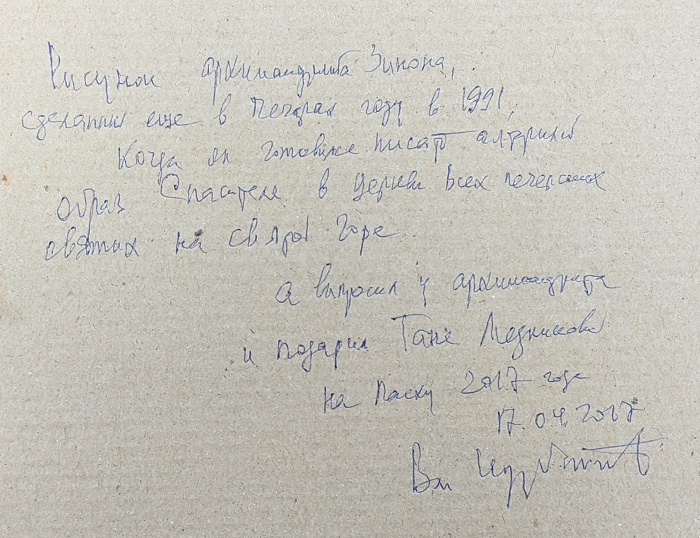 Рисунок архимандрита Зинона,
сделанный еще в Печорах году в 1991,
когда он готовился писать алтарный
образ Спасителя в церкви Всех печерских
святых на святой горе.
а выпросил у архимандрита
и подарил Тане Медниковой
на Пасху 2017 года
17.04.2017
Вл